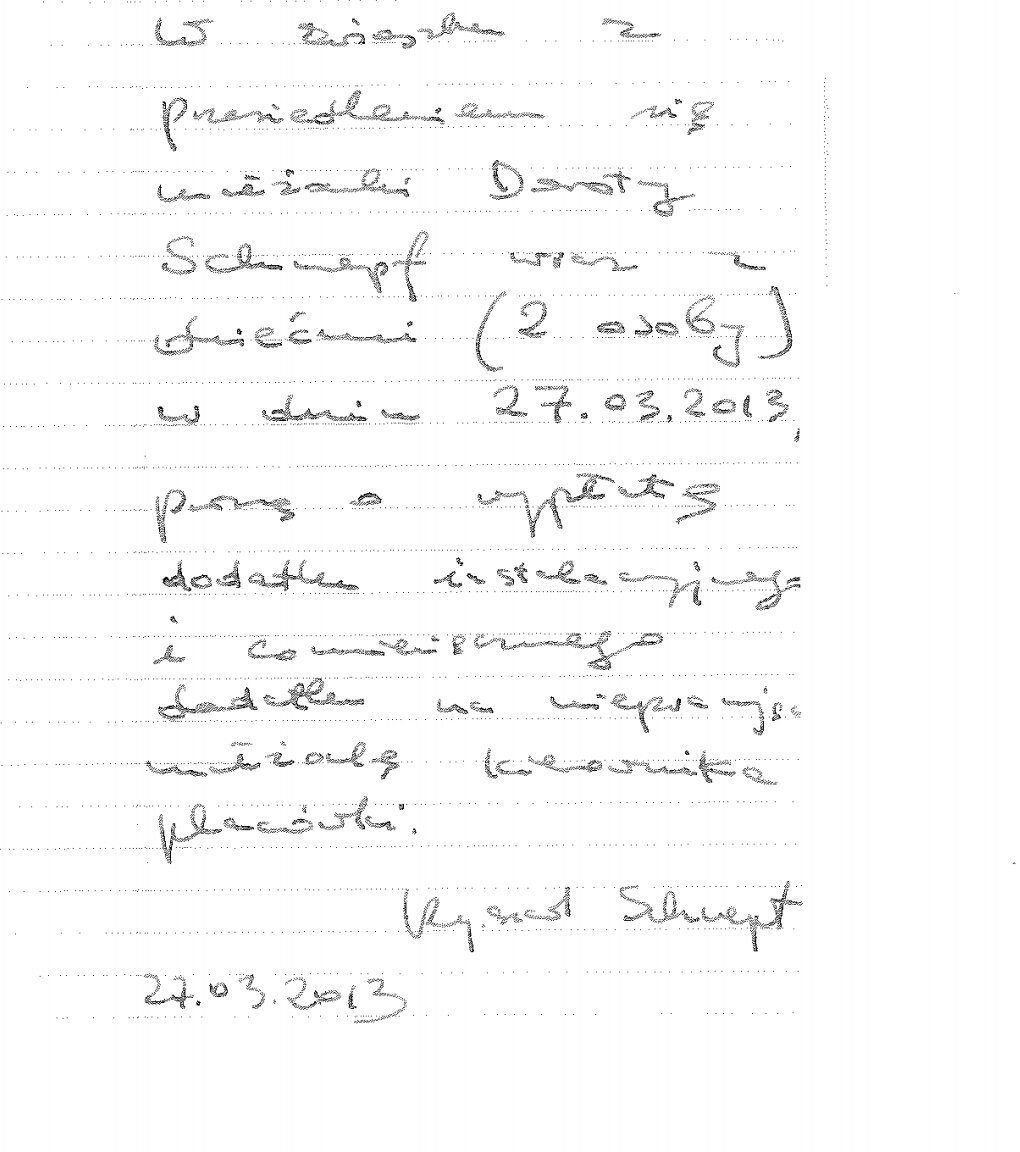 W związku z
przesiedleniem się
małżonki Doroty
Schnepf wraz z
dziećmi (2 osoby)
w dniu 27.03.2013,
proszę o wypłatę
dodatku instalacyjnego
i comiesięcznego
dodatku na niepracującą
małżonkę kierownika
placówki.
Ryszard Schnepf
27.03.2013